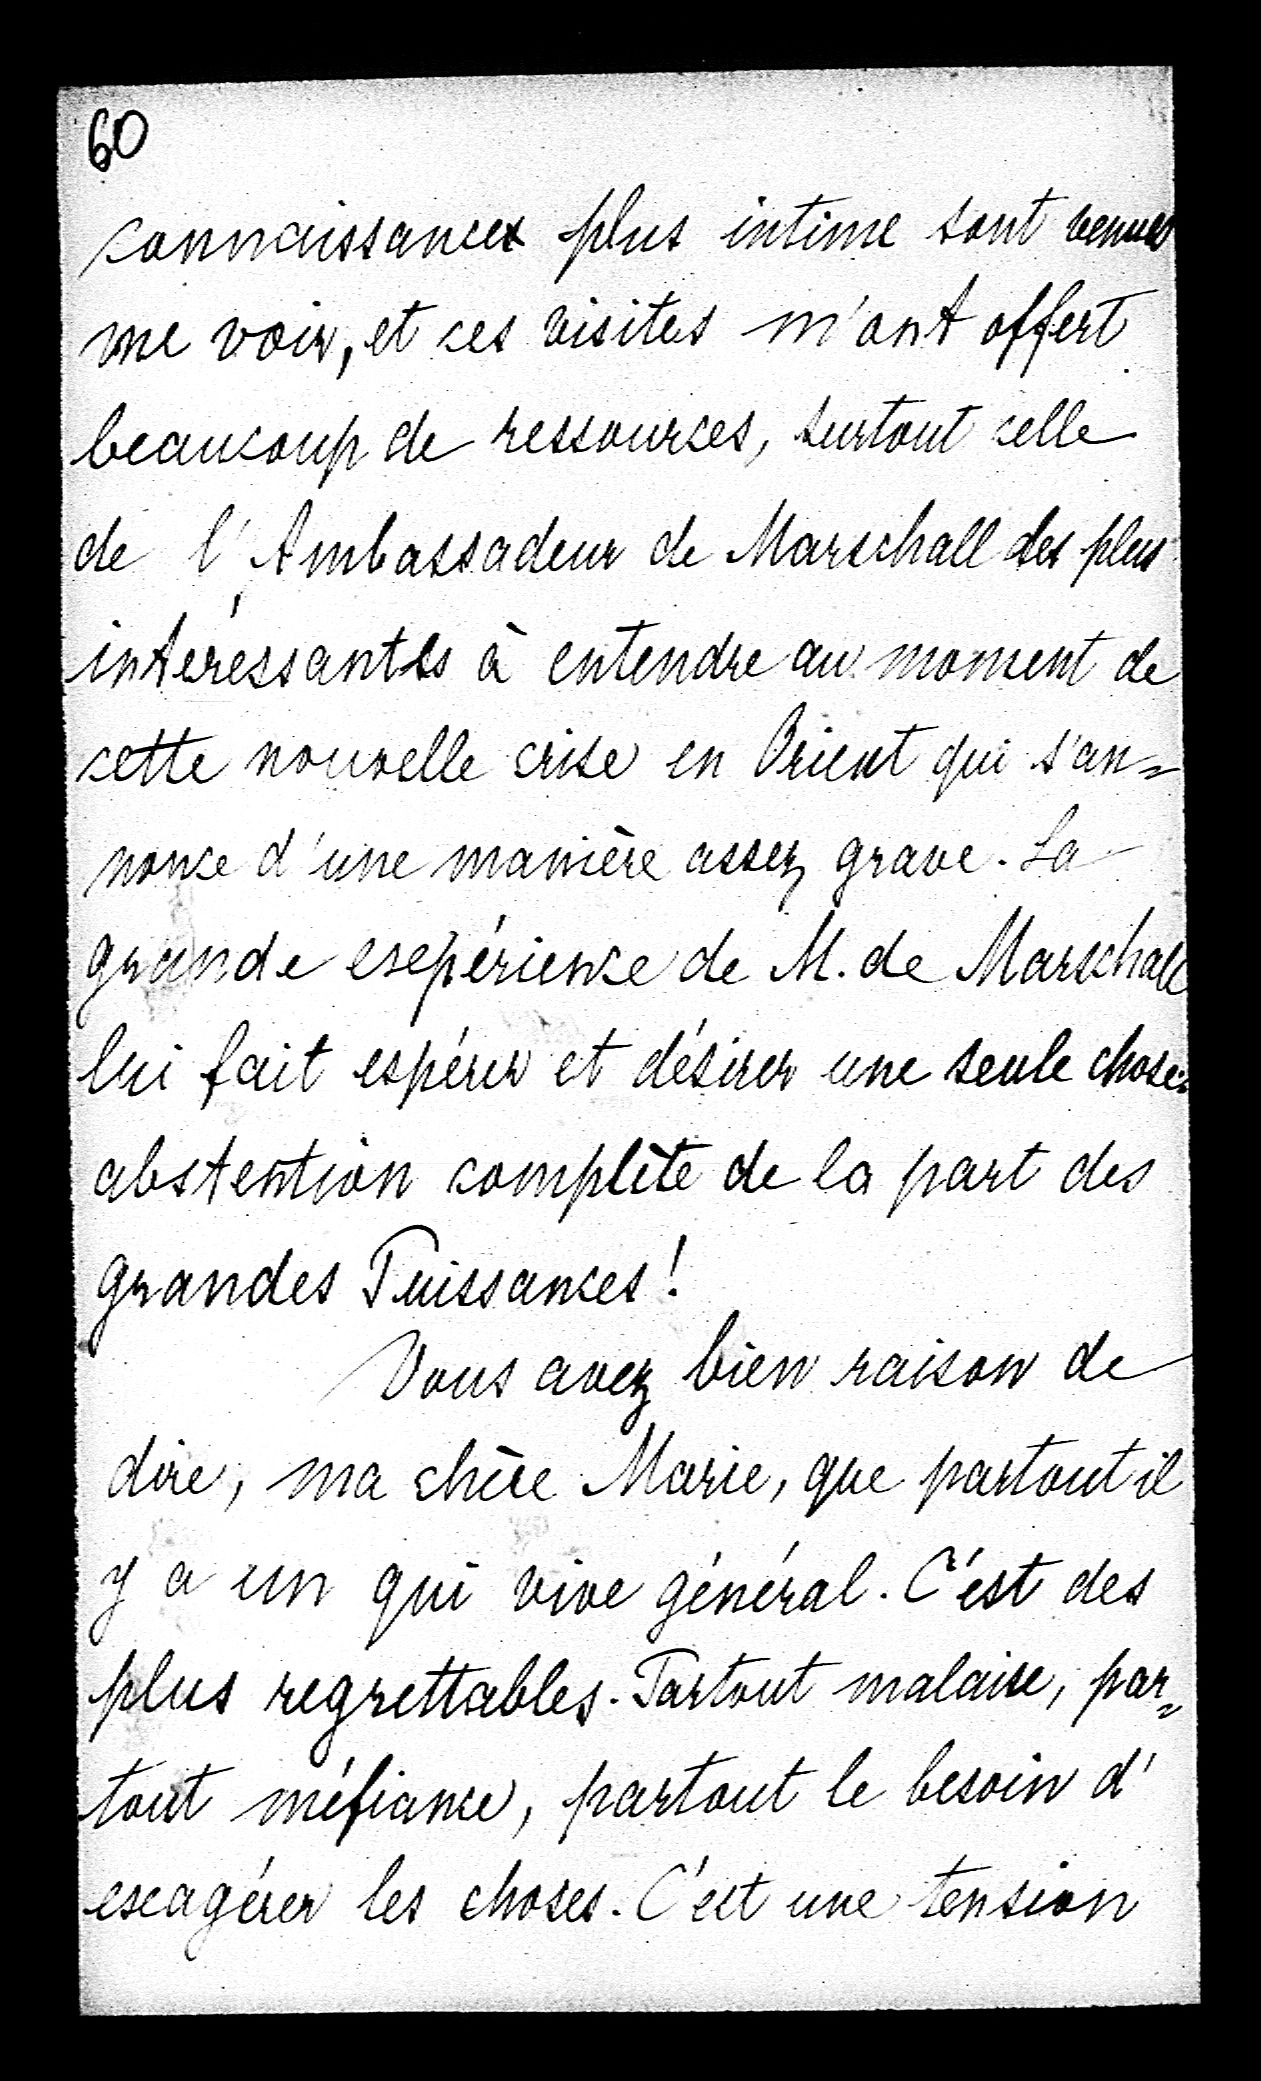 60
connaissances plus intime sont venues
me voir, et ces visites m'ont offert
beaucoup de ressources, surtout celle
de l'Ambassadeur de Marschall des plus
intéressantes à entendre au moment de
cette nouvelle crise en Orient qui s'an=
nonce d'une manière assez grave. La
grande expérience de M. de Marschall
lui fait espérer et désirer une seule chose:
abstention complète de la part des
grandes Puissances!
Vous avez bien raison de
dire, ma chère Marie, que partout il
y a un qui vive général. C'est des
plus regrettables. Partout malaise, par=
tout méfiance, partout le besoin d'
exagérer les choses. C'est une tension